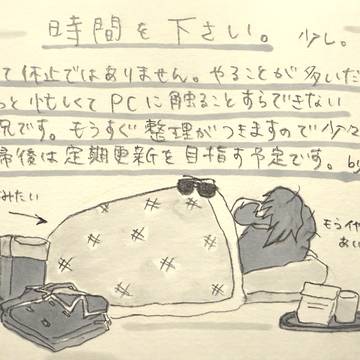 時間を下さい。 少し。
て休止ではありません。やることが多いだ
っと忙しくてPCに触ることすらできない
況です。もうすぐ整理がつきますので少々
帰後は定期更新を目指す予定です。by
みたい
もうイヤ
あい